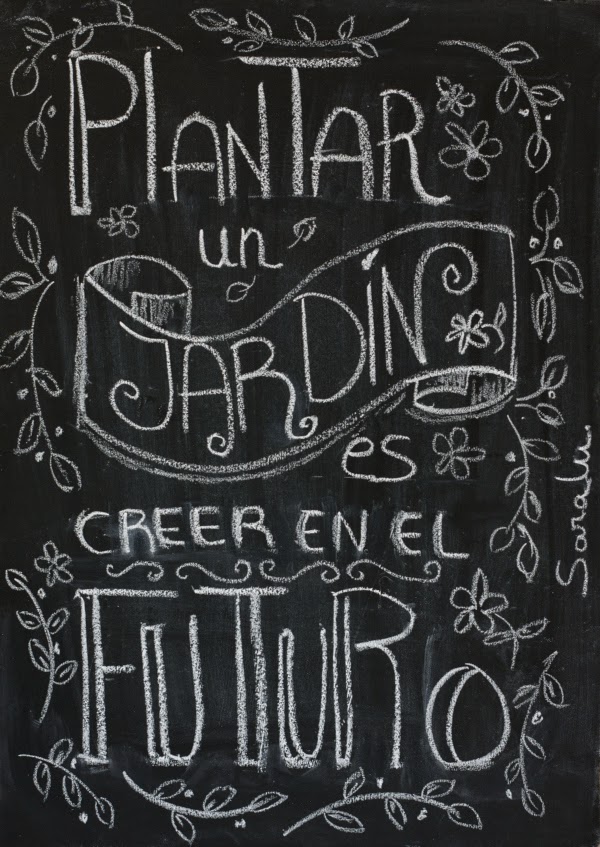 PlANTAR
un
JARDÍN
es
CREER EN EL
FUTURO
Saralu.